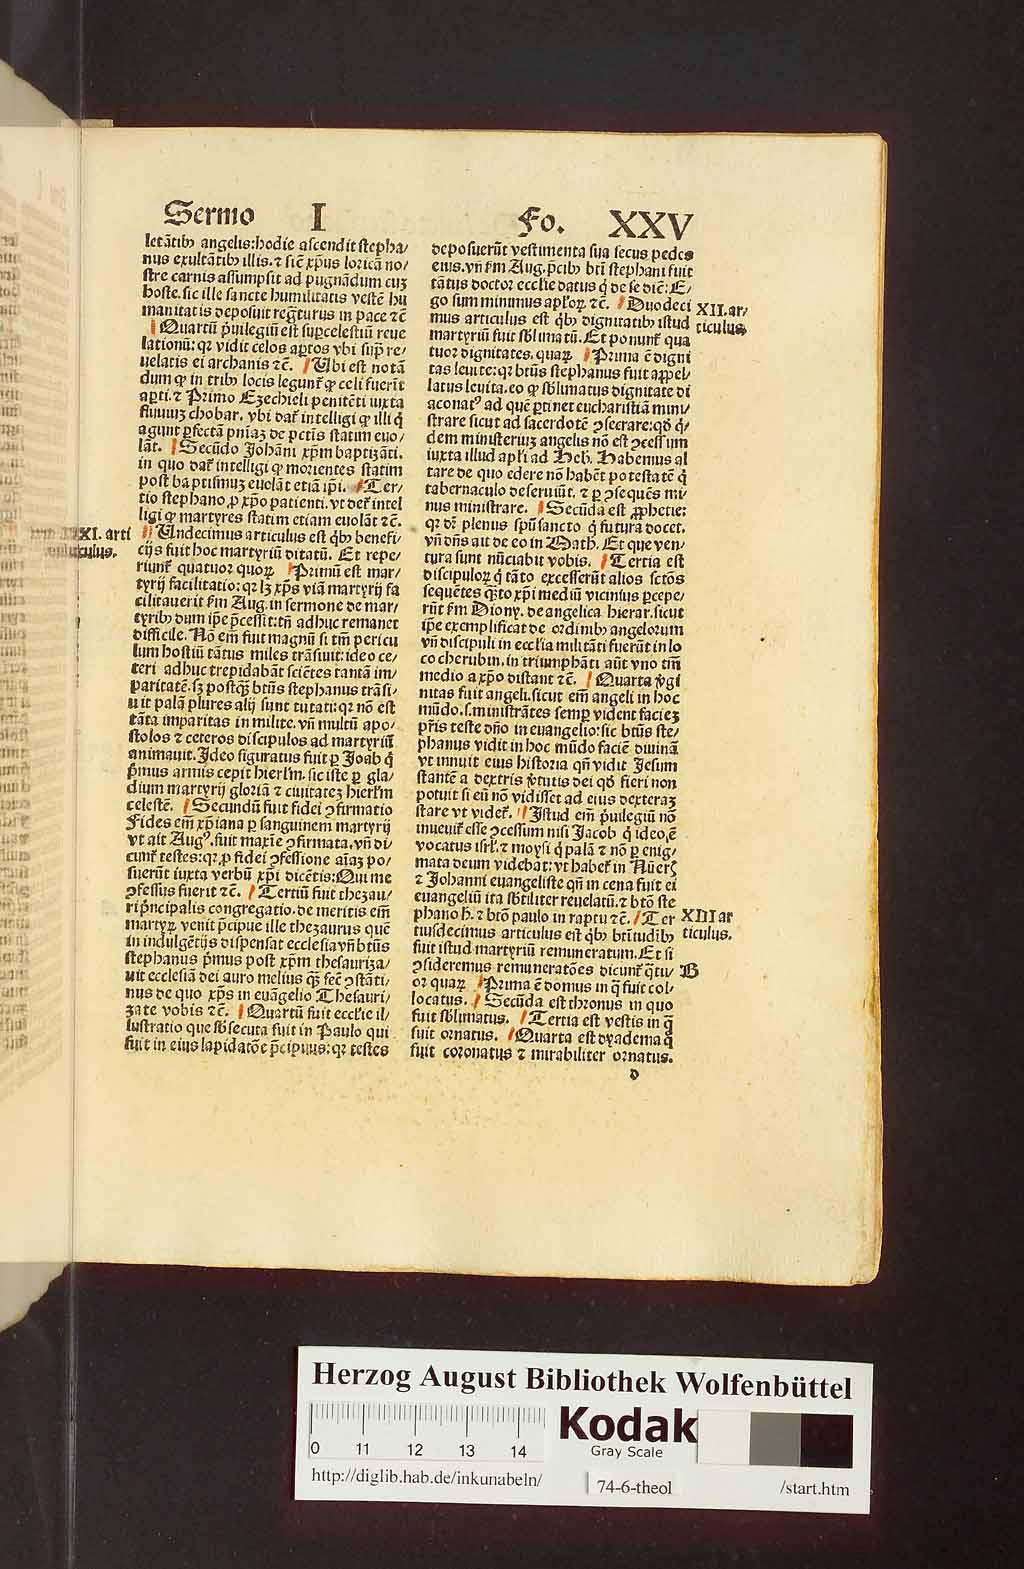 Sermo I Fo. XXV
letātibꝰ angelis: hodie ascendit stepha/
nus exultātibꝰ illis. ⁊ sic̄ xp̄us loricā no/
stre carnis assumpsit ad pugnādum cuȝ
hoste. sic ille sancte humilitatis vestē hu
manitatis deposuit reg̃turus in pace ⁊c̄
Quartū p̄uilegiū est suꝑcelestiū reue
lationū: qꝛ vidit celos aꝑtos vbi suꝑ re/
uelatis ei archanis ⁊c̄. Ubi est notā
dum ꝙ in tribꝰ locis legunt̄ ꝙ celi fuerūt
aꝑti. ⁊ Primo Ezechieli penitēti iuxta
fluuiuȝ chobar. vbi dat̄ intelligi ꝙ illi q̇
agunt ꝑfectā pn̄iaȝ de pctīs statim euo/
lāt. Secūdo Johāni xp̄m baptizāti.
in quo dat̄ intelligi ꝙ morientes statim
post baptismuȝ euolāt etiā ip̄i. Ter/
tio stephano ꝓ xp̄o patienti. vt det̄ intel
ligi ꝙ martyres statim etiam euolāt ⁊c̄.
XI. arti
culus.
Undecimus articulus est qb̄ꝰ benefi/
cijs fuit hoc martyriū ditatū. Et repe/
riunt̄ quatuor quoꝝ. Primū est mar/
tyrij facilitatio: qꝛ lȝ xp̄s viā martyrij fa
cilitauerit ẜm Aug. in sermone de mar/
tyribꝰ dum ip̄e p̄cessit: tn̄ adhuc remanet
difficile. Nō em̄ fuit magnū si tm̄ pericu
lum hostiū tātus miles trāsiuit: ideo ce/
teri adhuc trepidabāt sciētes tantā im/
paritatē. sȝ postq̄ꝫ btūs stephanus trāsi/
uit palā plures alij sunt tutati: qꝛ nō est
tāta imparitas in milite. vn̄ multū apo/
stolos ⁊ ceteros discipulos ad martyriū
animauit. Ideo figuratus fuit ꝑ Joab q̇
p̄mus armis cepit hierl̄m. sic iste ꝑ gla/
dium martyrij gloriā ⁊ ciuitateȝ hierl̄m
celestē. Secundū fuit fidei ꝯfirmatio
Fides em̄ xp̄iana ꝑ sanguinem martyrij
vt ait Augꝰ. fuit maxīe ꝯfirmata. vn̄ di/
cunt̄ testes: qꝛ ꝓ fidei ꝯfessione aīaȝ po/
suerūt iuxta verbū xp̄i dicētis: Qui me
ꝯfessus fuerit ⁊c̄. Tertiū fuit thezau/
ri p̄ncipalis congregatio. de meritis em̄
martyꝝ venit p̄cipue ille thezaurus quē
in indulgētijs dispensat ecclesia vn̄ btūs
stephanus p̄mus post xp̄m thesauriza/
uit ecclesiā dei auro melius q̄ꝫ fec̄ ꝯstāti/
nus de quo xp̄s in euāgelio Thesauri/
zate vobis ⁊c̄. Quartū fuit eccl̄ie il/
lustratio que sb̄secuta fuit in Paulo qui
fuit in eius lapidatōe p̄cipuus: qꝛ testes
deposuerūt vestimenta sua secus pedes
eius. vn̄ ẜm Aug. p̄cibꝰ btī stephani fuit
tātus doctor eccl̄ie datus q̇ de se dic̄: E/
go sum minimus apl̄oꝝ ⁊c̄. Duodeci
XII. ar/
ticulus
mus articulus est qb̄ꝰ dignitatibꝰ istud
martyriū fuit sb̄limatū. Et ponunt̄ qua
tuor dignitates. quaꝝ. Prima ē digni
tas leuite: qꝛ btūs stephanus fuit appel/
latus leuita. eo ꝙ sb̄limatus dignitate di
aconatꝰ ad quē ꝑtinet eucharistiā mini/
strare sicut ad sacerdotē ꝯsecrare: qd̄ q̇/
dem ministeriuȝ angelis nō est ꝯcessum
iuxta illud apl̄i ad Heb. Habemus al
tare de quo edere nō habēt potestatē q̇
tabernaculo deseruiūt. ⁊ ꝑ ꝯsequēs mi/
nus ministrare. Secūda est ꝓphetie:
qꝛ dr̄ plenus spū sancto q̇ futura docet.
vn̄ dn̄s ait de eo in Math. Et que ven/
tura sunt nūciabit vobis. Tertia est
discipuloꝝ q̇ tāto excesserūt alios sctōs
sequētes q̄ꝫto xp̄i mediū vicinius ꝑcepe/
rūt ẜm Diony. de angelica hierar. sicut
ip̄e exemplificat de ordinibꝰ angelorum
vn̄ discipuli in eccl̄ia militāti fuerūt in lo
co cherubin. in triumphāti aūt vno tm̄
medio a xp̄o distant ⁊c̄. Quarta v̄gi
nitas fuit angeli. sicut em̄ angeli in hoc
mūdo. s. ministrātes semꝑ vident facieȝ
pr̄is teste dn̄o in euangelio: sic btūs ste/
phanus vidit in hoc mūdo faciē diuinā
vt innuit eius historia qn̄ vidit Jesum
stantē a dextris v̄tutis dei qd̄ fieri non
potuit si eū nō vidisset ad eius dexteraȝ
stare vt videt̄. Istud em̄ p̄uilegiū nō
inuenit̄ esse ꝯcessum nisi Jacob q̇ ideo ē
vocatus isrl̄. ⁊ moysi q̇ palā ⁊ nō ꝑ enig/
mata deum videbat: vt habet̄ in Nūeꝝ
⁊ Johanni euangeliste qn̄ in cena fuit ei
euangeliū ita sb̄tiliter reuelatū. ⁊ btō ste
phano h̄. ⁊ btō paulo in raptu ⁊c̄. Ter
XIII ar
ticulus.
tiusdecimus articulus est qb̄ꝰ btītudībꝰ
fuit istud martyriū remuneratum. Et si
ꝯsideremus remuneratōes dicunt̄ q̄tu/
B
or quaꝝ Prima ē domus in q̄ fuit col/
locatus. Secūda est thronus in quo
fuit sb̄limatus. Tertia est vestis in q̄
fuit ornatus. Quarta est dyadema q̄
fuit coronatus ⁊ mirabiliter ornatus.
d
Herzog August Bibliothek Wolfenbüttel
0 11 12 13 14
Kodak
Gray Scale
http://diglib.hab.de/inkunabeln/ 74-6-theol /start.htm